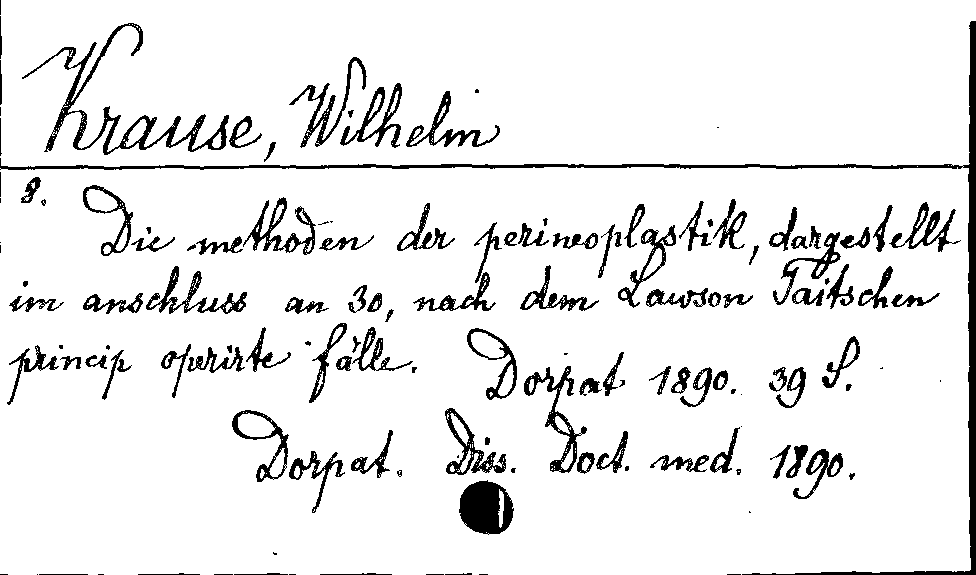 Krause, Wilhelm
8.
Die methoden der perineoplastik, dargestellt
im anschluss an 30, nach dem Lawson Taitschen
princip operirte fälle.
Dorpat 1890. 39 S.
Dorpat. Diss. Doct. med. 1890.